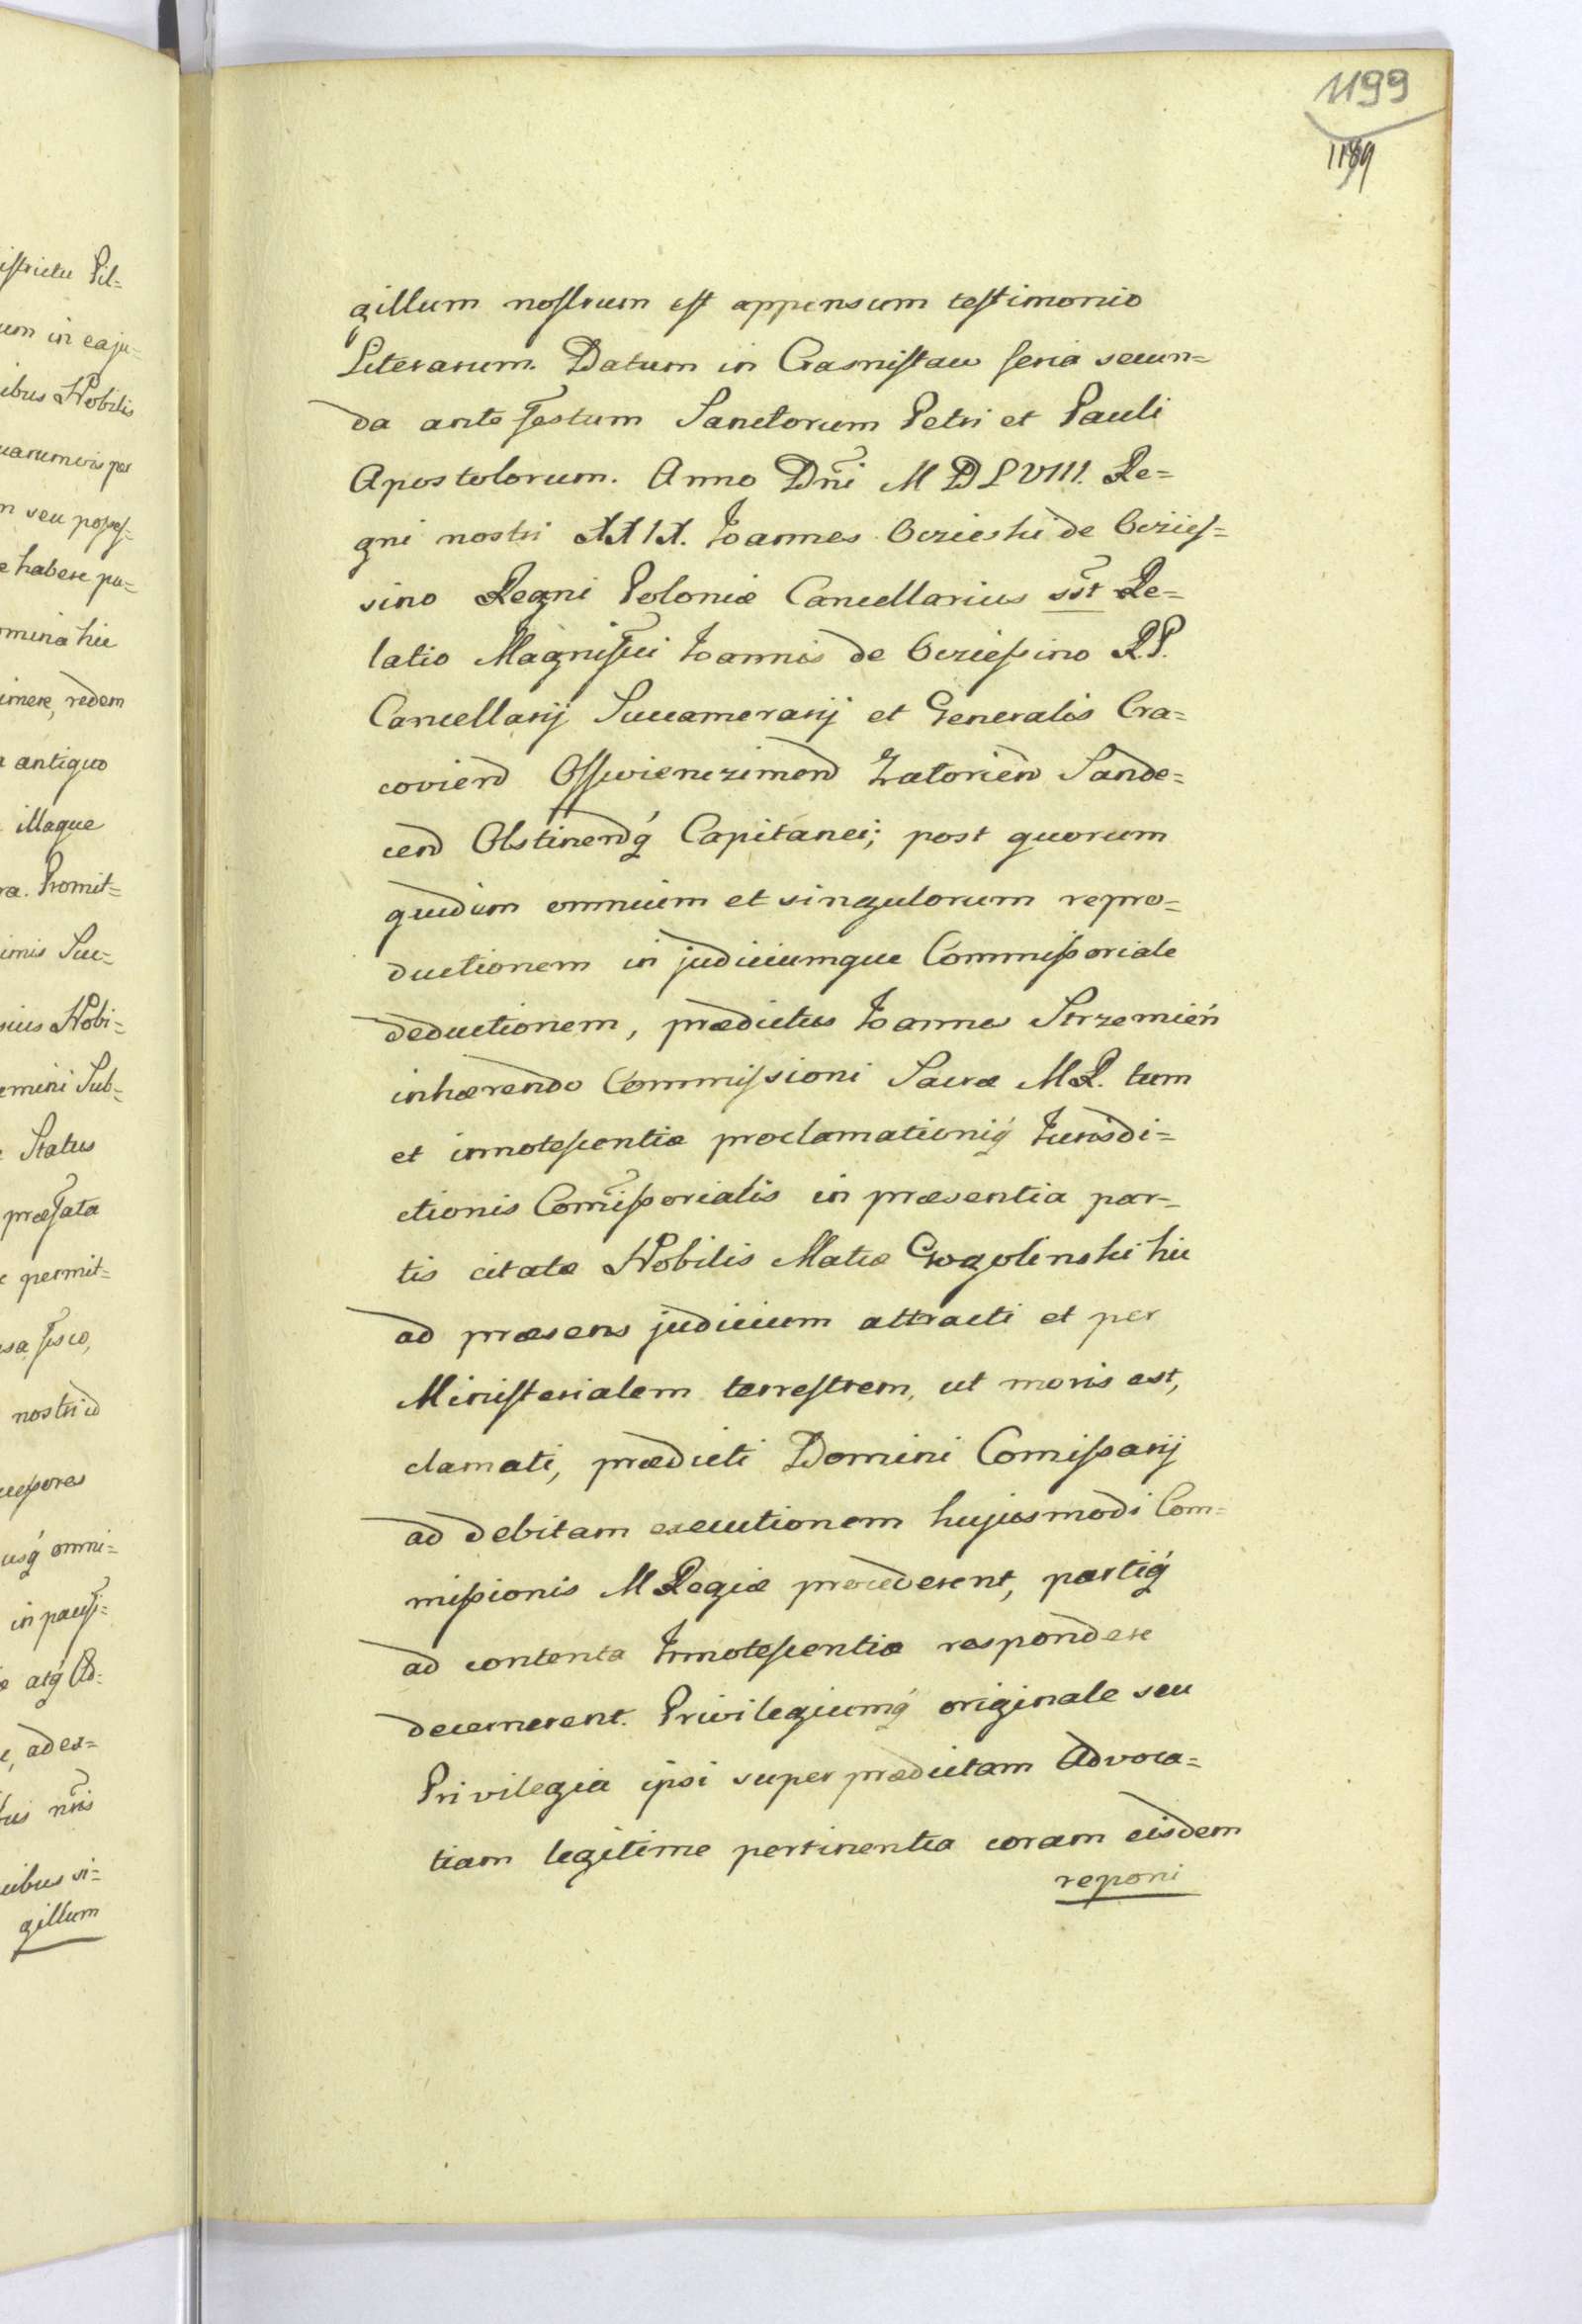 istrictu Pil=
um in eaju=
ibus Nobilis
uarumvis per
n seu posses=
e habere pu=
omina hic
imere, redem
a antiquo
illaque
ra. Promit=
imis Suc=
sius Nobi=
emini Sub=
e Status
præfata
e permit=
sa fisco,
nostri id
ucessores
usq́ omni=
in paucj=
atq́ Ad=
ad ex=
bus nr̃is
uibus si=
gillum
1199
1189
gillum nostrum est appensum testimonio
Literarum. Datum in Crasnistaw feria secun=
da ante festum Sanctorum Petri et Pauli
Apostolorum. Anno Dñi MDLVIII. Re=
gni nostri XXIX. Joannes Oczieski de Oczies=
sino Regni Poloniæ Cancellarius sst Re=
latio Magnifici Joannis de Ocziessino R.P.
Cancellarij Succamerarij et Generalis Cra=
covien Osswienczimen Zatorien Sande=
cen Olstinenq́ Capitanei; post quorum
quidem omnium et singulorum repro=
ductionem in judiciumque Commissoriale
deductionem, prædictus Joannes Strzemień
inhærendo Commissioni Sacræ M.R. tum
et innotescentiæ proclamationiq́ Jurisdi=
ctionis Com̃issorialis in præsentia par=
tis citatæ Nobilis Matiæ Gogolinski hic
ad præsens judicium attracti et per
Ministerialem terrestrem, ut moris est,
clamati, prædicti Domini Comissarij
ad debitam executionem hujusmodi Com=
missionis M Regiæ procederent, partiq́
ad contenta Innotescentiæ respondere
decernerent. Privilegiumq́ originale seu
Privilegia ipsi super prædictam Advoca=
tiam legitime pertinentia coram eisdem
reponi